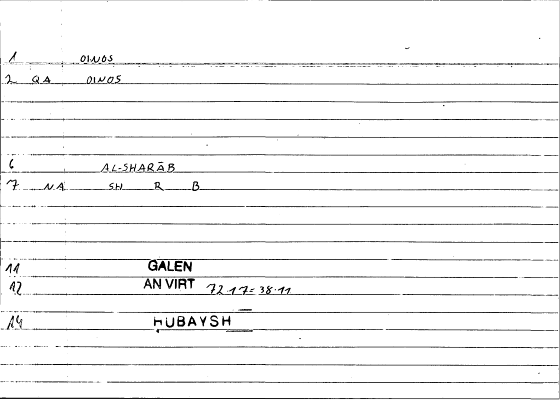 1 OINOS
2 QA OINOS
6 AL-SHARĀB
7 NA SH R B
11 GALEN
12 AN VIRT 72.17=38.11
14 HUBAYSH